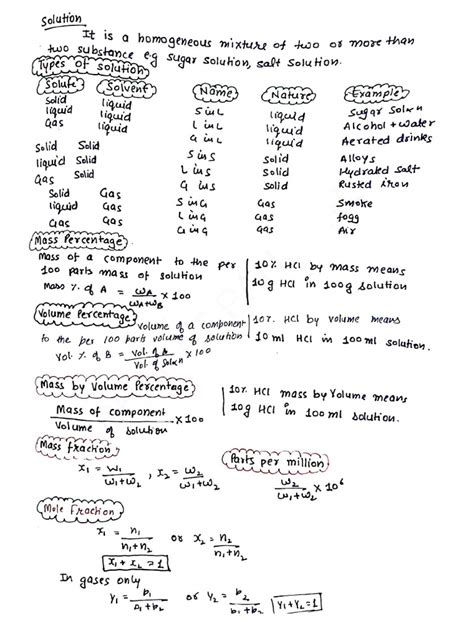 Solution
It is a homogeneous mixture of two or more than
two substance e.g sugar solution, salt solution.
Types of solution
Solute Solvent Name Nature Example
Solid liquid S in L liquid Sugar Solxn
liquid liquid L in L liquid Alcohol + water
Gas liquid G in L Aerated drinks
Solid Solid S in S Solid Alloys
liquid Solid L in S Solid Hydrated salt
Gas Solid G in S Solid Rusted iron
Solid Gas S in G Gas Smoke
liquid Gas L in G Gas fogg
Gas Gas G in G Gas Air
Mass Percentage
Mass of a component to the per
100 parts mass of solution
Mass %. of A = ωA/ωA+ωB × 100
10% HCl by mass means
10g HCl in 100g solution
Volume Percentage
volume of a component
to the per 100 parts volume of solution
Vol. %. of B = Vol. of A/Vol. of Solxn × 100
10%. HCl by volume means
10 ml HCl in 100 ml solution.
Mass by Volume Percentage
Mass of component/Volume of solution × 100
10%. HCl mass by Volume means
10g HCl in 100 ml solution.
Mass fraction
x1 = W1/ω1+ω2 , x2 = ω2/ω1+ω2
Parts per million
ω2/ω1+ω2 × 10^6
Mole Fraction
x1 = n1/n1+n2 or x2 = n2/n1+n2
x1 + x2 = 1
In gases only
Y1 = p1/p1+p2 or Y2 = p2/p1+p2 Y1+Y2=1